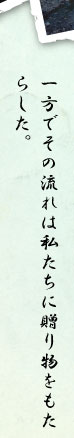 一方でその流れは私たちに贈り物をもた
らした。